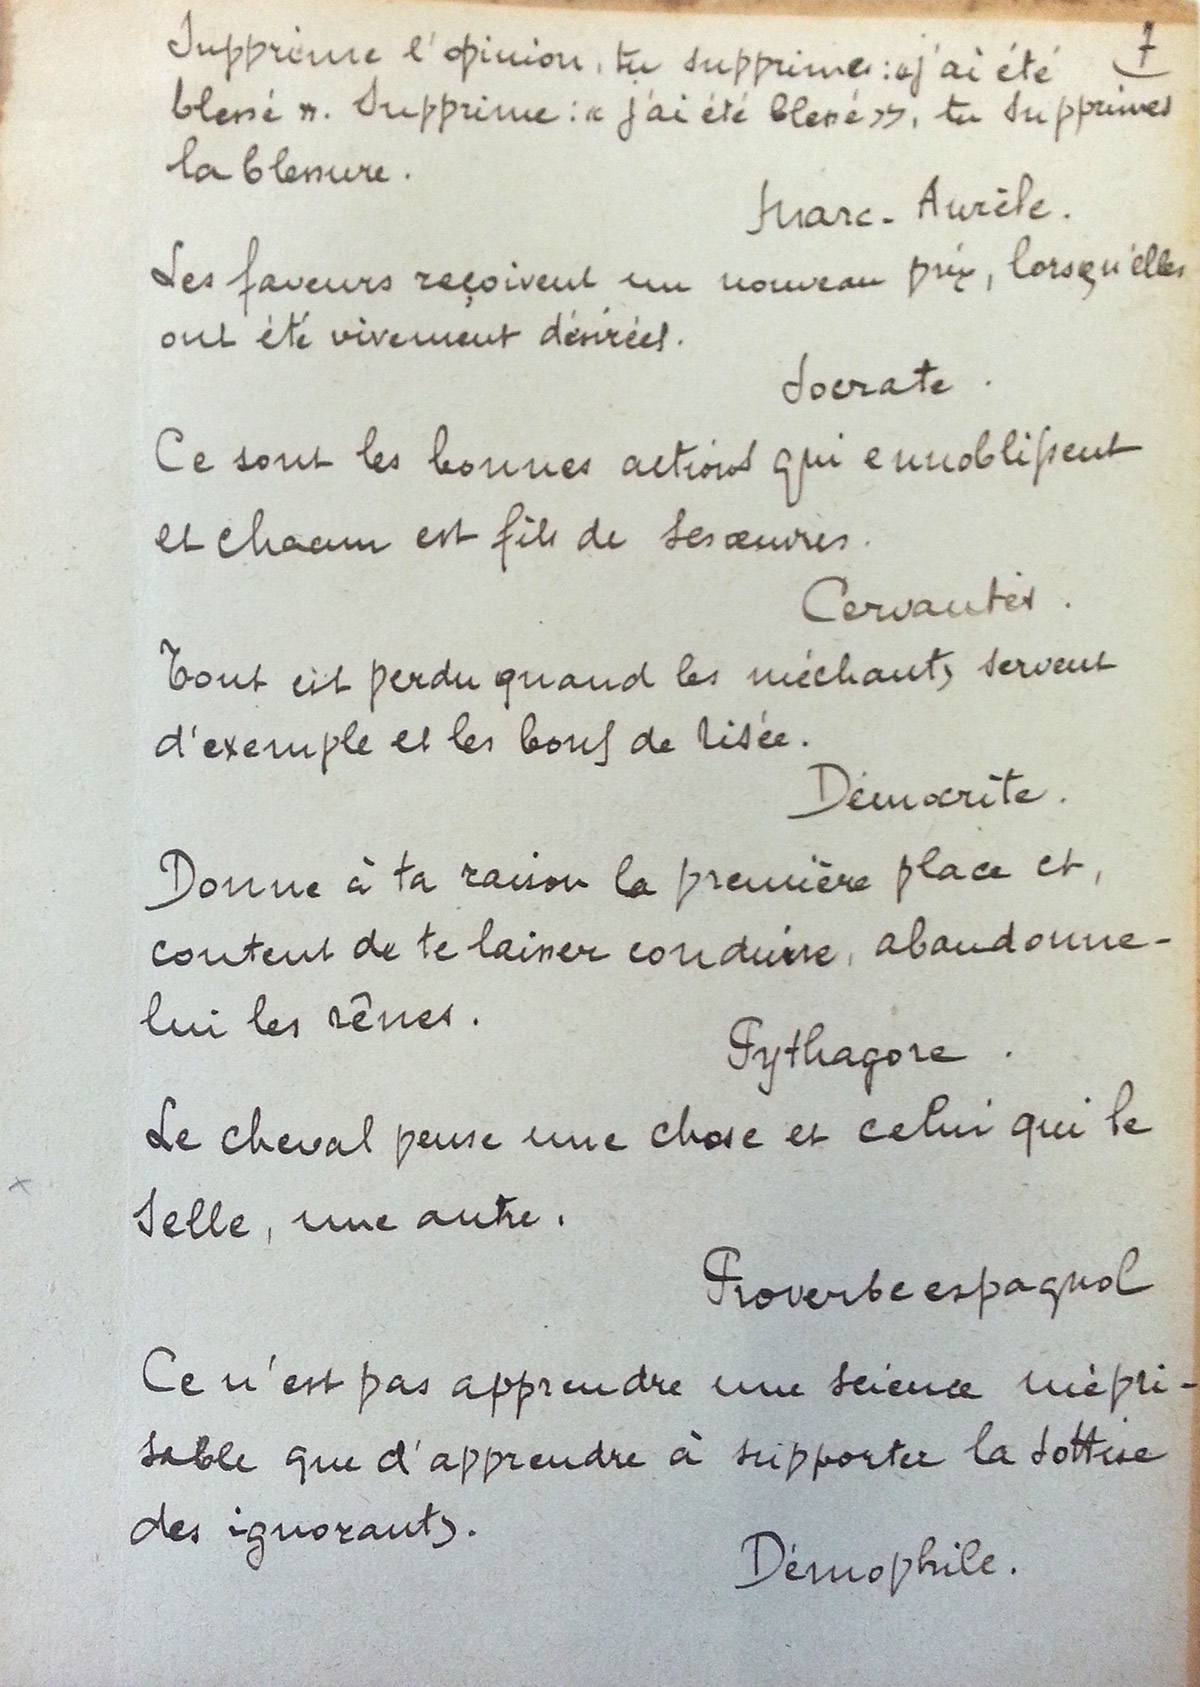 7
Supprime l'opinion, tu supprimes : « j'ai été
blessé ». Supprime : « j'ai été blessé », tu supprimes
la blessure.
Marc-Aurèle.
Les faveurs reçoivent un nouveau prix, lorsqu'elles
ont été vivement désirées.
Socrate.
Ce sont les bonnes actions qui ennoblissent
et chacun est fils de ses œuvres.
Cervantès.
Tout est perdu quand les méchants servent
d'exemple et les bons de risée.
Démocrite.
Donne à ta raison la première place et,
content de te laisser conduire, abandonne-
lui les rênes.
Pythagore.
Le cheval pense une chose et celui qui le
selle, une autre.
Proverbe espagnol
Ce n'est pas apprendre une science mépri-
sable que d'apprendre à supporter la sottise
des ignorants.
Démophile.